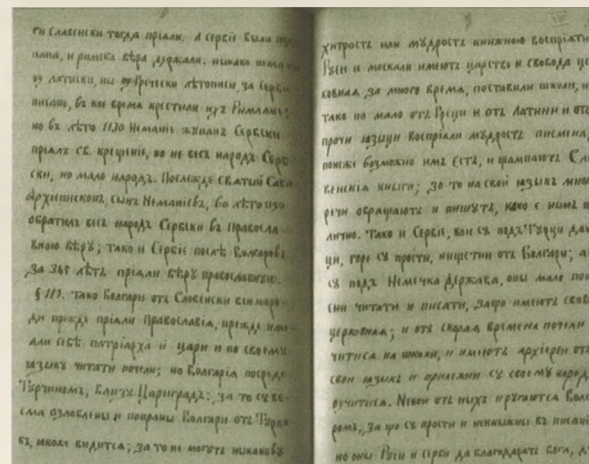 ги Славенски тогда прїали. А Сербїе были
папа, и римска вѣра держали; никако
оу латински, ни оу Гречески лѣтописи, за Серби
писано, въ кое время крестили ихъ Римлани;
но въ лѣто 1170 Неманїе жупанъ Сербски
прїалъ св. крещенїе, но не весъ народъ Серб
ски, но мало народъ. Послежде святый Сава
Архиепископъ, сынъ Неманїевъ, во лѣто
обратилъ весъ народъ Сербски въ Правосла-
вною вѣру; тако и Сербїе послѣ Болгаровъ
за 345 лѣтъ прїали вѣру православную.
Тако Болгари отъ Словенски вси наро-
ди прежде прїали Православїя, прежде име-
али себѣ патрїарха и цари и по своему
языку читати почели; но Болгарїя посреде
Турчиномъ, близу Цариградъ; за то су ве-
сма озлоблены и попраны Болгари отъ Турко
въ, якоже видится; за то не могутъ никакову
хитростъ или мудростъ книжною воспрїяти
Руси и москали имеютъ царство и свобода це
ковная за много время, поставили школи, и
тако по мало отъ Греци и отъ Латини и отъ
прочи языци воспрїали мудростъ писмена,
понеже возможно имъ естъ, и щампаютъ Сло
венскїя книги; за то на свой языкъ много
речи обращаютъ и пишутъ, како е нимъ
лично. Тако и Сербїе, кои су подъ Турци
ци, горе су прости, нищетни отъ Болгари; а
су подъ Немечка Держава, оны мало
ени читати и писати, защо имеютъ сво
церковная; и отъ скораа времена почели
читися на школи, и имеютъ архїереи отъ
свои языкъ и прилежни су своему народ
оучитися. Некои отъ ныхъ и ругаются Бол
ромъ, за що су прости и некнижны въ писанї
но оны Руси и Серби да благодарятъ Бога,